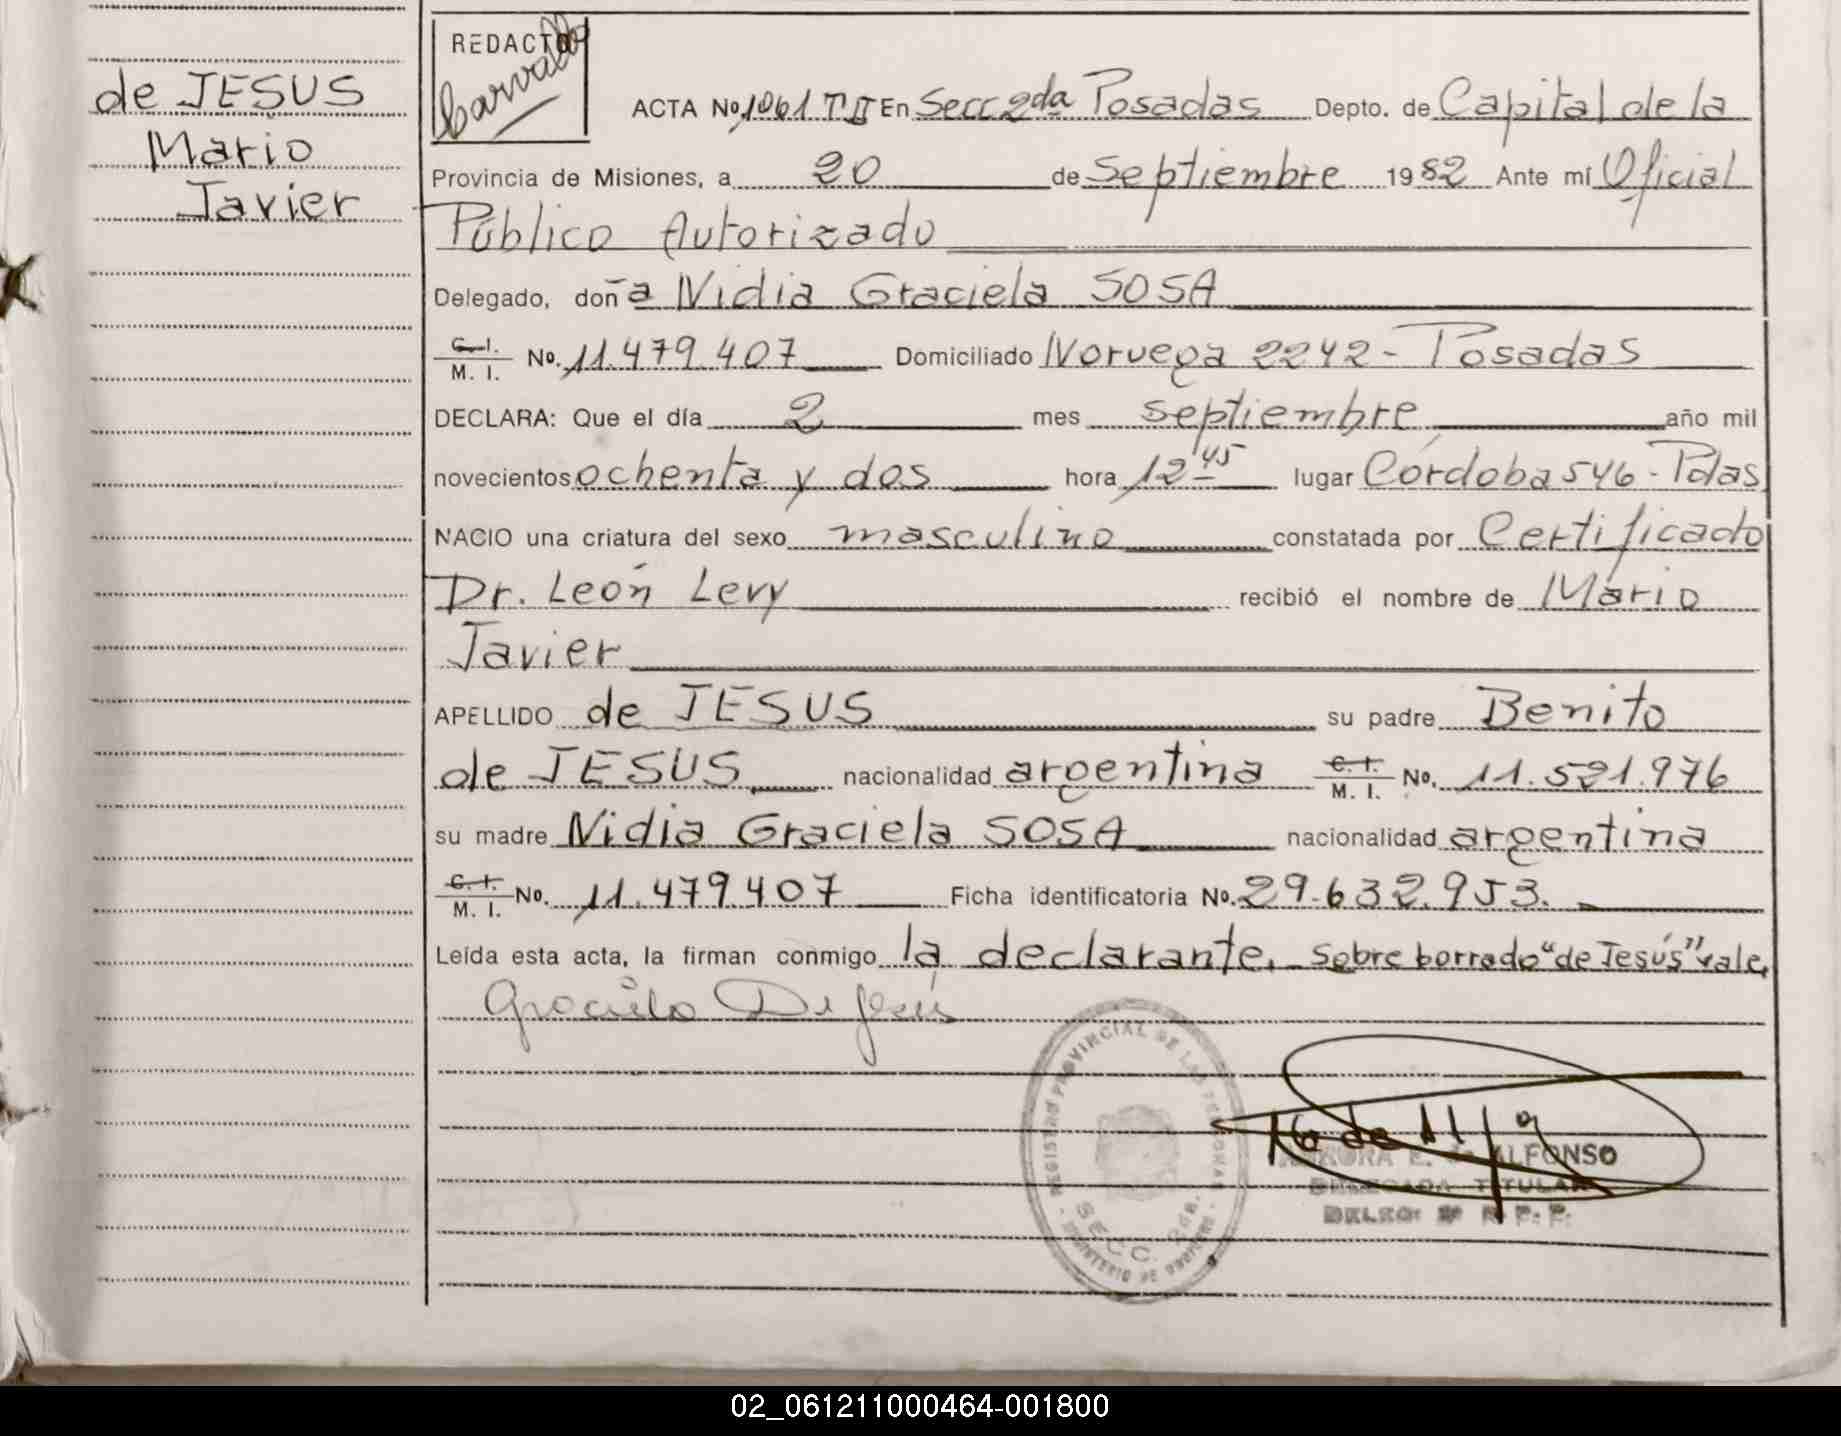 de JESUS
Mario
Javier
REDACTO
Carvallo
ACTA Nº 1061 T II En Secc 2da Posadas Depto. de Capital de la
Provincia de Misiones, a 20 de Septiembre 1982 Ante mí Oficial
Público Autorizado
Delegado, doña Nidia Graciela SOSA
C. I. M. I. Nº. 11.479.407 Domiciliado Noruega 2242 - Posadas
DECLARA: Que el día 2 mes septiembre año mil
novecientos ochenta y dos hora 12 45 lugar Córdoba 546 - Pdas
NACIO una criatura del sexo masculino constatada por Certificado
Dr. León Levy recibió el nombre de Mario
Javier
APELLIDO de JESUS su padre Benito
de JESUS nacionalidad argentina C. I. M. I. Nº. 11.521.976
su madre Nidia Graciela SOSA nacionalidad argentina
C. I. M. I. Nº. 11.479.407 Ficha identificatoria Nº. 29.632.953.
Leída esta acta, la firman conmigo la declarante. Sobre borrado "de Jesús" vale.
Graciela De Jesús
REGISTRO PROVINCIAL DE LAS PERSONAS
SECC. 2da.
MINISTERIO DE GOBIERNO
E. de ALFONSO
DELEGADA TITULAR
02_061211000464-001800